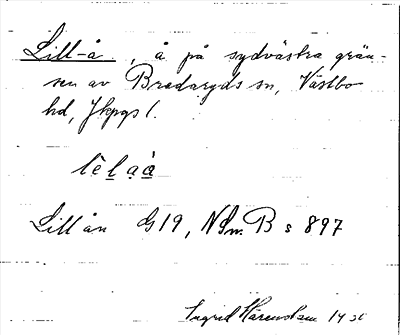 Lill-å, å på sydvästra grän-
sen av Bredaryds sn, Västbo
hd, Jkpgs l.
Lillån G19, NSm. B s 897
Ingrid Härenstam 19